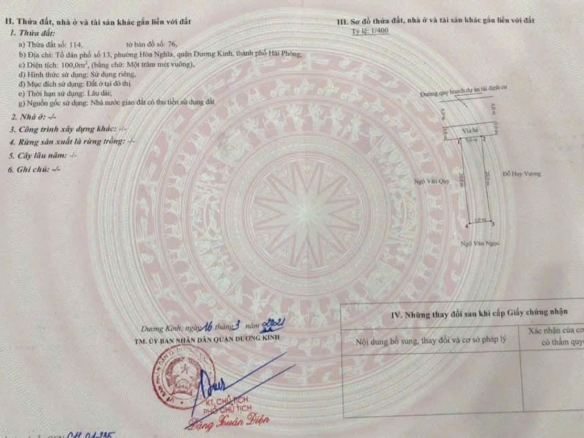 II. Thửa đất, nhà ở và tài sản khác gắn liền với đất
1. Thửa đất:
a) Thửa đất số: 114, tờ bản đồ số: 76,
b) Địa chỉ: Tổ dân phố số 13, phường Hòa Nghĩa, quận Dương Kinh, thành phố Hải Phòng,
c) Diện tích: 100,0m², (bằng chữ: Một trăm mét vuông),
d) Hình thức sử dụng: Sử dụng riêng,
đ) Mục đích sử dụng: Đất ở tại đô thị
e) Thời hạn sử dụng: Lâu dài,
g) Nguồn gốc sử dụng: Nhà nước giao đất có thu tiền sử dụng đất
2. Nhà ở: -/-
3. Công trình xây dựng khác: -/-
4. Rừng sản xuất là rừng trồng: -/-
5. Cây lâu năm: -/-
6. Ghi chú: -/-
Dương Kinh, ngày 16 tháng 3 năm 2021
TM. ỦY BAN NHÂN DÂN QUẬN DƯƠNG KINH
KT. CHỦ TỊCH
PHÓ CHỦ TỊCH
Đặng Xuân Diện
III. Sơ đồ thửa đất, nhà ở và tài sản khác gắn liền với đất
Tỷ lệ: 1/400
Đường quy hoạch dự án tái định cư
Vỉa hè
5.0 m
Ngô Văn Quý
Đỗ Huy Vương
5.0 m
Ngô Văn Ngọc
IV. Những thay đổi sau khi cấp Giấy chứng nhận
Nội dung bổ sung, thay đổi và cơ sở pháp lý
Xác nhận của cơ
có thẩm quyề